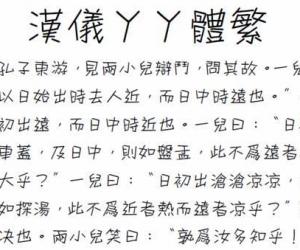 漢儀丫丫體繁
孔子東游，見兩小兒辯鬥，問其故。一兒
以日始出時去人近，而日中時遠也。”
初出遠，而日中時近也。一兒曰：“日
車蓋，及日中，則如盤盂，此不爲遠者
大乎？”一兒曰：“日初出滄滄涼涼，
如探湯，此不爲近者熱而遠者涼乎？”
决也。兩小兒笑曰：“孰爲汝多知乎！